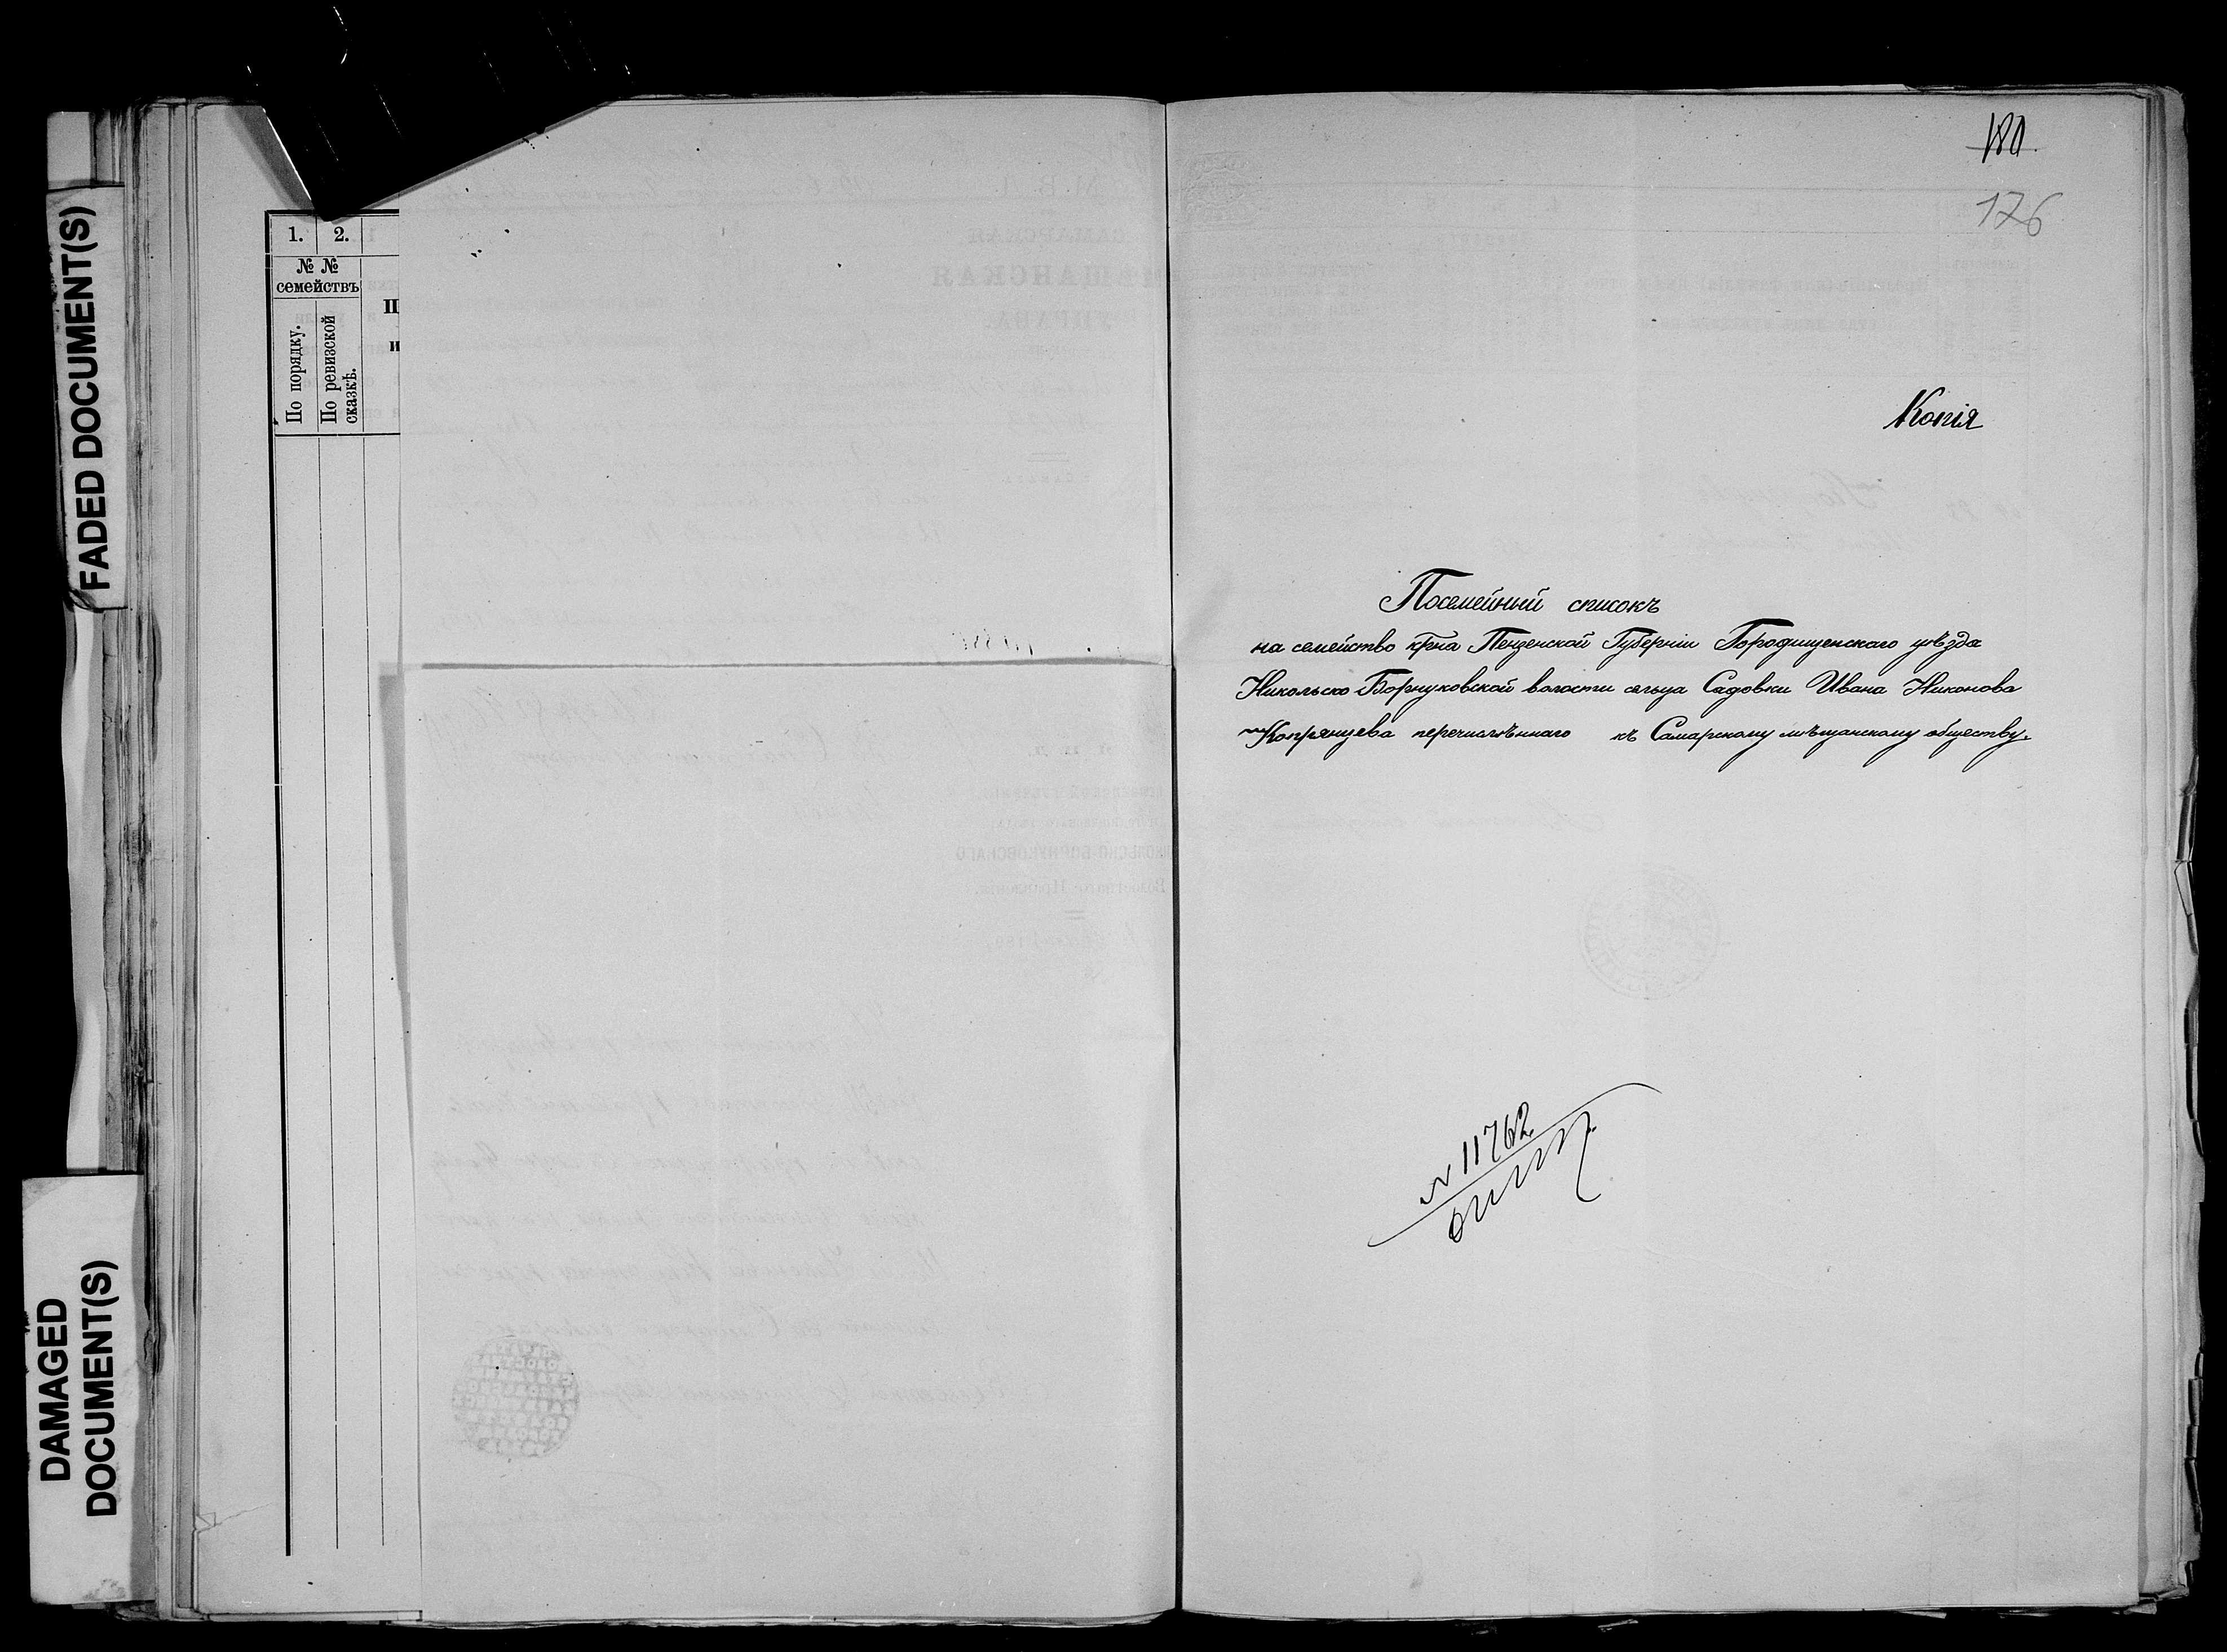 FADED DOCUMENT(S)
DAMAGED
DOCUMENT(S)
1. 2.
№ №
семействъ
По порядку.
По ревизской
сказкѣ.
П
и
180.
126
Копія
Посемейный списокъ
на семейство кр̅на Пензенской Губерніи Городищенскаго уѣзда
Никольско Борнуковской волости сельца Садовки Ивана Никонова
Копрянцева перечисленнаго къ Самарскому мѣщанскому обществу.
№ 11762